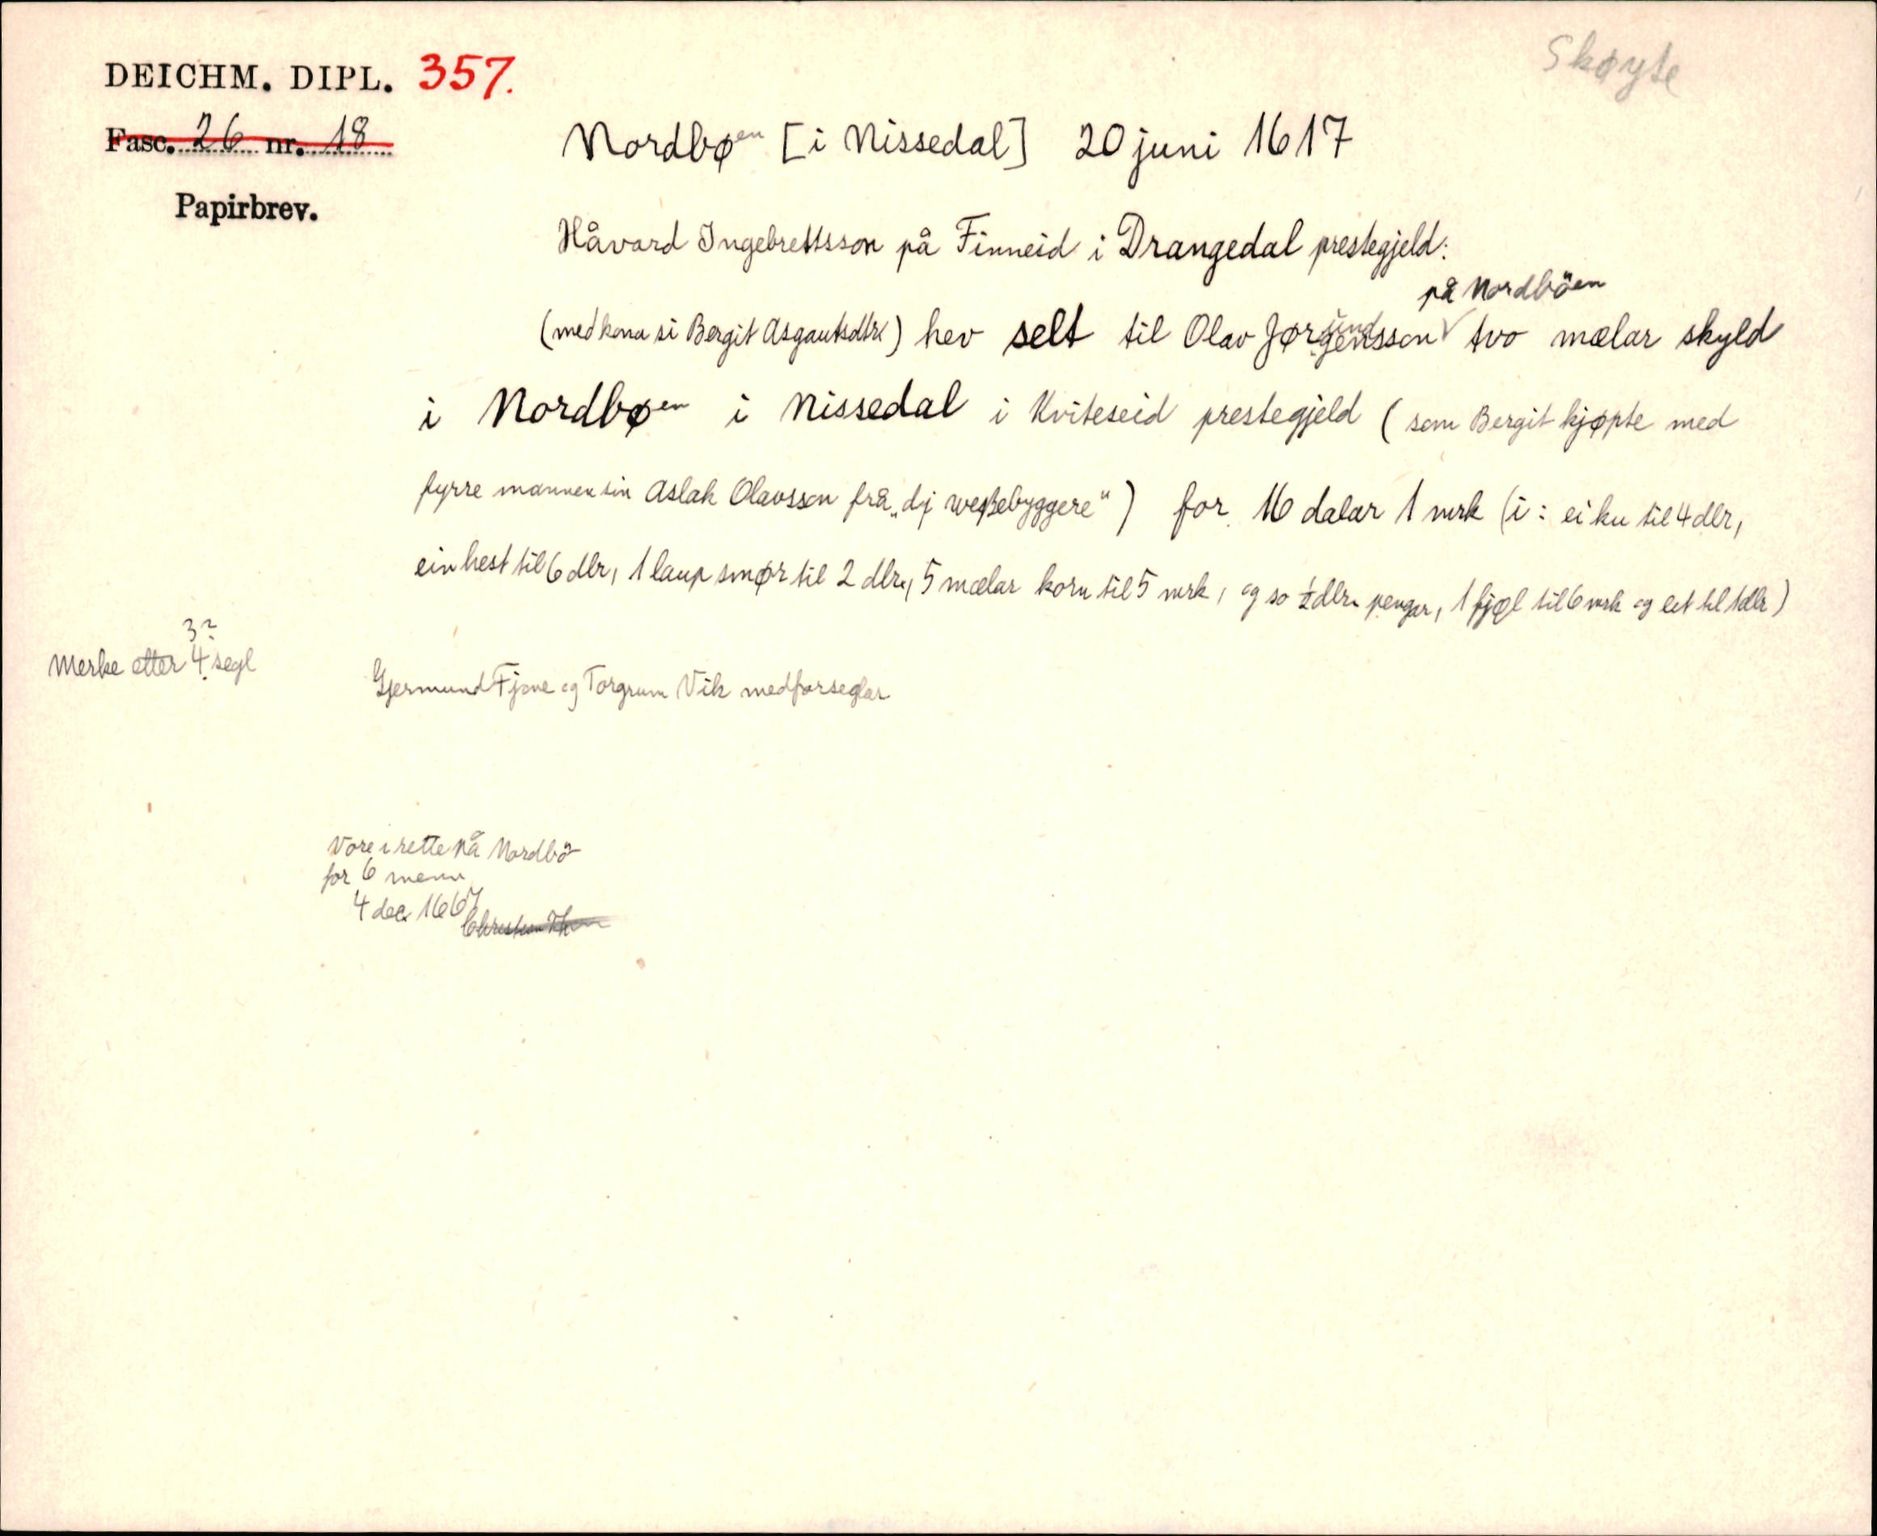 Skøyte
DEICHM. DIPL. 357.
Fasc. 26 nr. 18
Papirbrev.
Nordbøen [i Nissedal] 20 juni 1617
Håvard Ingebrettsson på Finneid i Drangedal prestegjeld:
på Nordböen
(med kona si Bergit Asgautsdtr) hev selt til Olav Jørgensson tvo mælar skyld
i Nordbøen i Nissedal i Kviteseid prestegjeld (som Bergit kjøpte med
fyrre mannen sin Aslak Olavsson frå „dj westebyggere") for 16 dalar 1 mrk (i: ei ku til 4 dlr,
ein hest til 6 dlr, 1 laup smør til 2 dlr, 5 mælar korn til 5 mrk, og so ½ dlr pengar, 1 fjøl til 6 mrk og eit til 1 dlr)
3?
Merke etter 4 segl
Gjermund Fjone og Torgrum Vik medforseglar
Vore i rette på Nordbö
for 6 menn
4 dec 1667